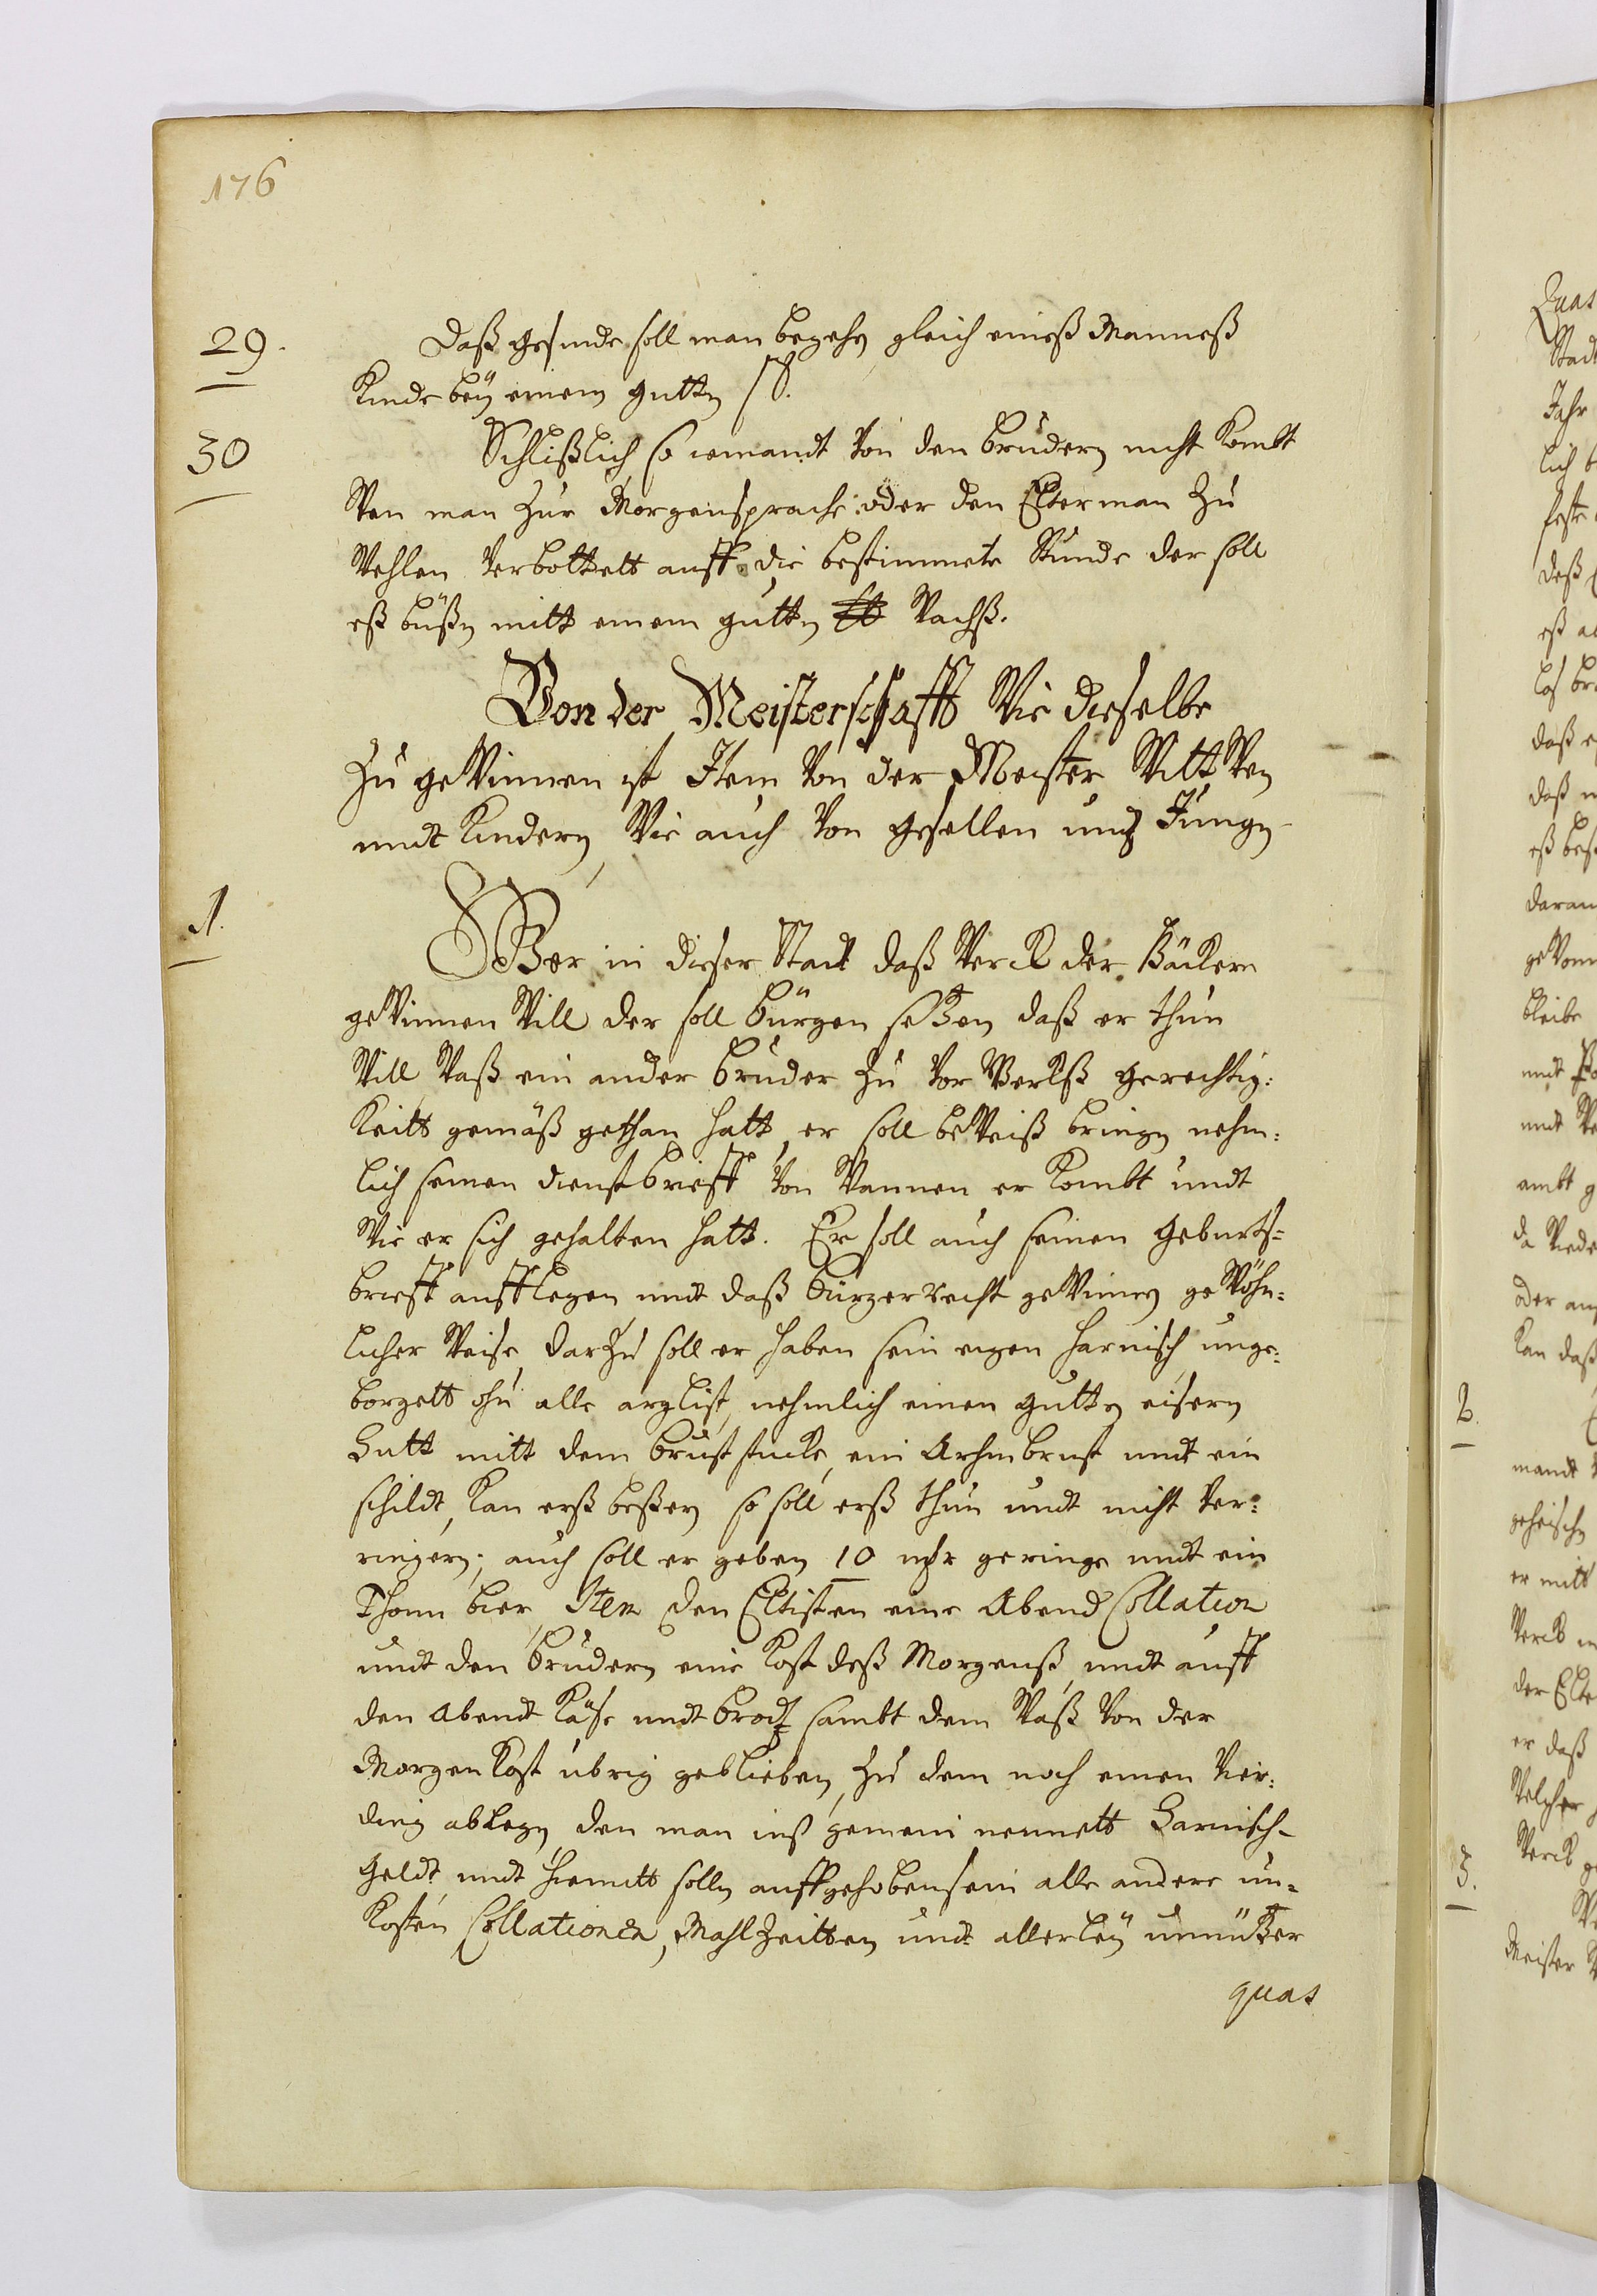 176
29.
Daß gesinde soll man begehen gleich eineß Manneß
Kinde beÿ einem gutten ß.
30
Schlißlich so iemandt von den brudern nicht kombt
Wen man zur Morgensprache oder den Elterman zu
Wehlen verbottett auff die bestimmete Stunde der soll
eß büßen mitt einem gutten ℔ Wachß.
Von der Meisterschafft Wie dieselbe
zu geWinnen ist Item von der Meister WittWen
undt Kindern, Wie auch von Gesellen und Jungen
1.
Wer in dieser Stadt daß Werck der Bäckern
geWinnen Will der soll bürgen seßen, daß er thun
Will Waß ein ander bruder zu vor Werckß gerechtig:
keitt gemäß gethan hatt, er soll beWeiß bringen nehm:
lich seinen dienstbrieff von Wannen er kombt undt
Wie er sich gehalten hatt. Er soll auch seinen Geburts=
brieff aufflegen undt daß bürgerrecht geWinnen geWöhn:
licher Weise, darzu soll er haben sein eigen Harnisch unge:
borgett ohn alle arglist, nehmlich einen gutten eisern
Hutt mitt dem bruststucke, ein Arhmbrust undt ein
schildt, kan erß beßern so soll erß thun undt nicht ver:
ringern; auch soll er geben 10 mhr geringe undt ein
Thonn bier, Item den Eltisten eine Abend Collation
undt den brudern eine kost deß Morgenß, undt auff
den Abendt Käse undt brodt sambt dem Waß von der
Morgenkost übrig geblieben, zu dem noch einen Vier:
ding ablegen den man inß gemein nennett Harnisch-
Geldt undt hiemitt sollen auffgehoben sein alle andere un=
kosten Collationen, Mahlzeitten undt allerleÿ unnüßer
quas